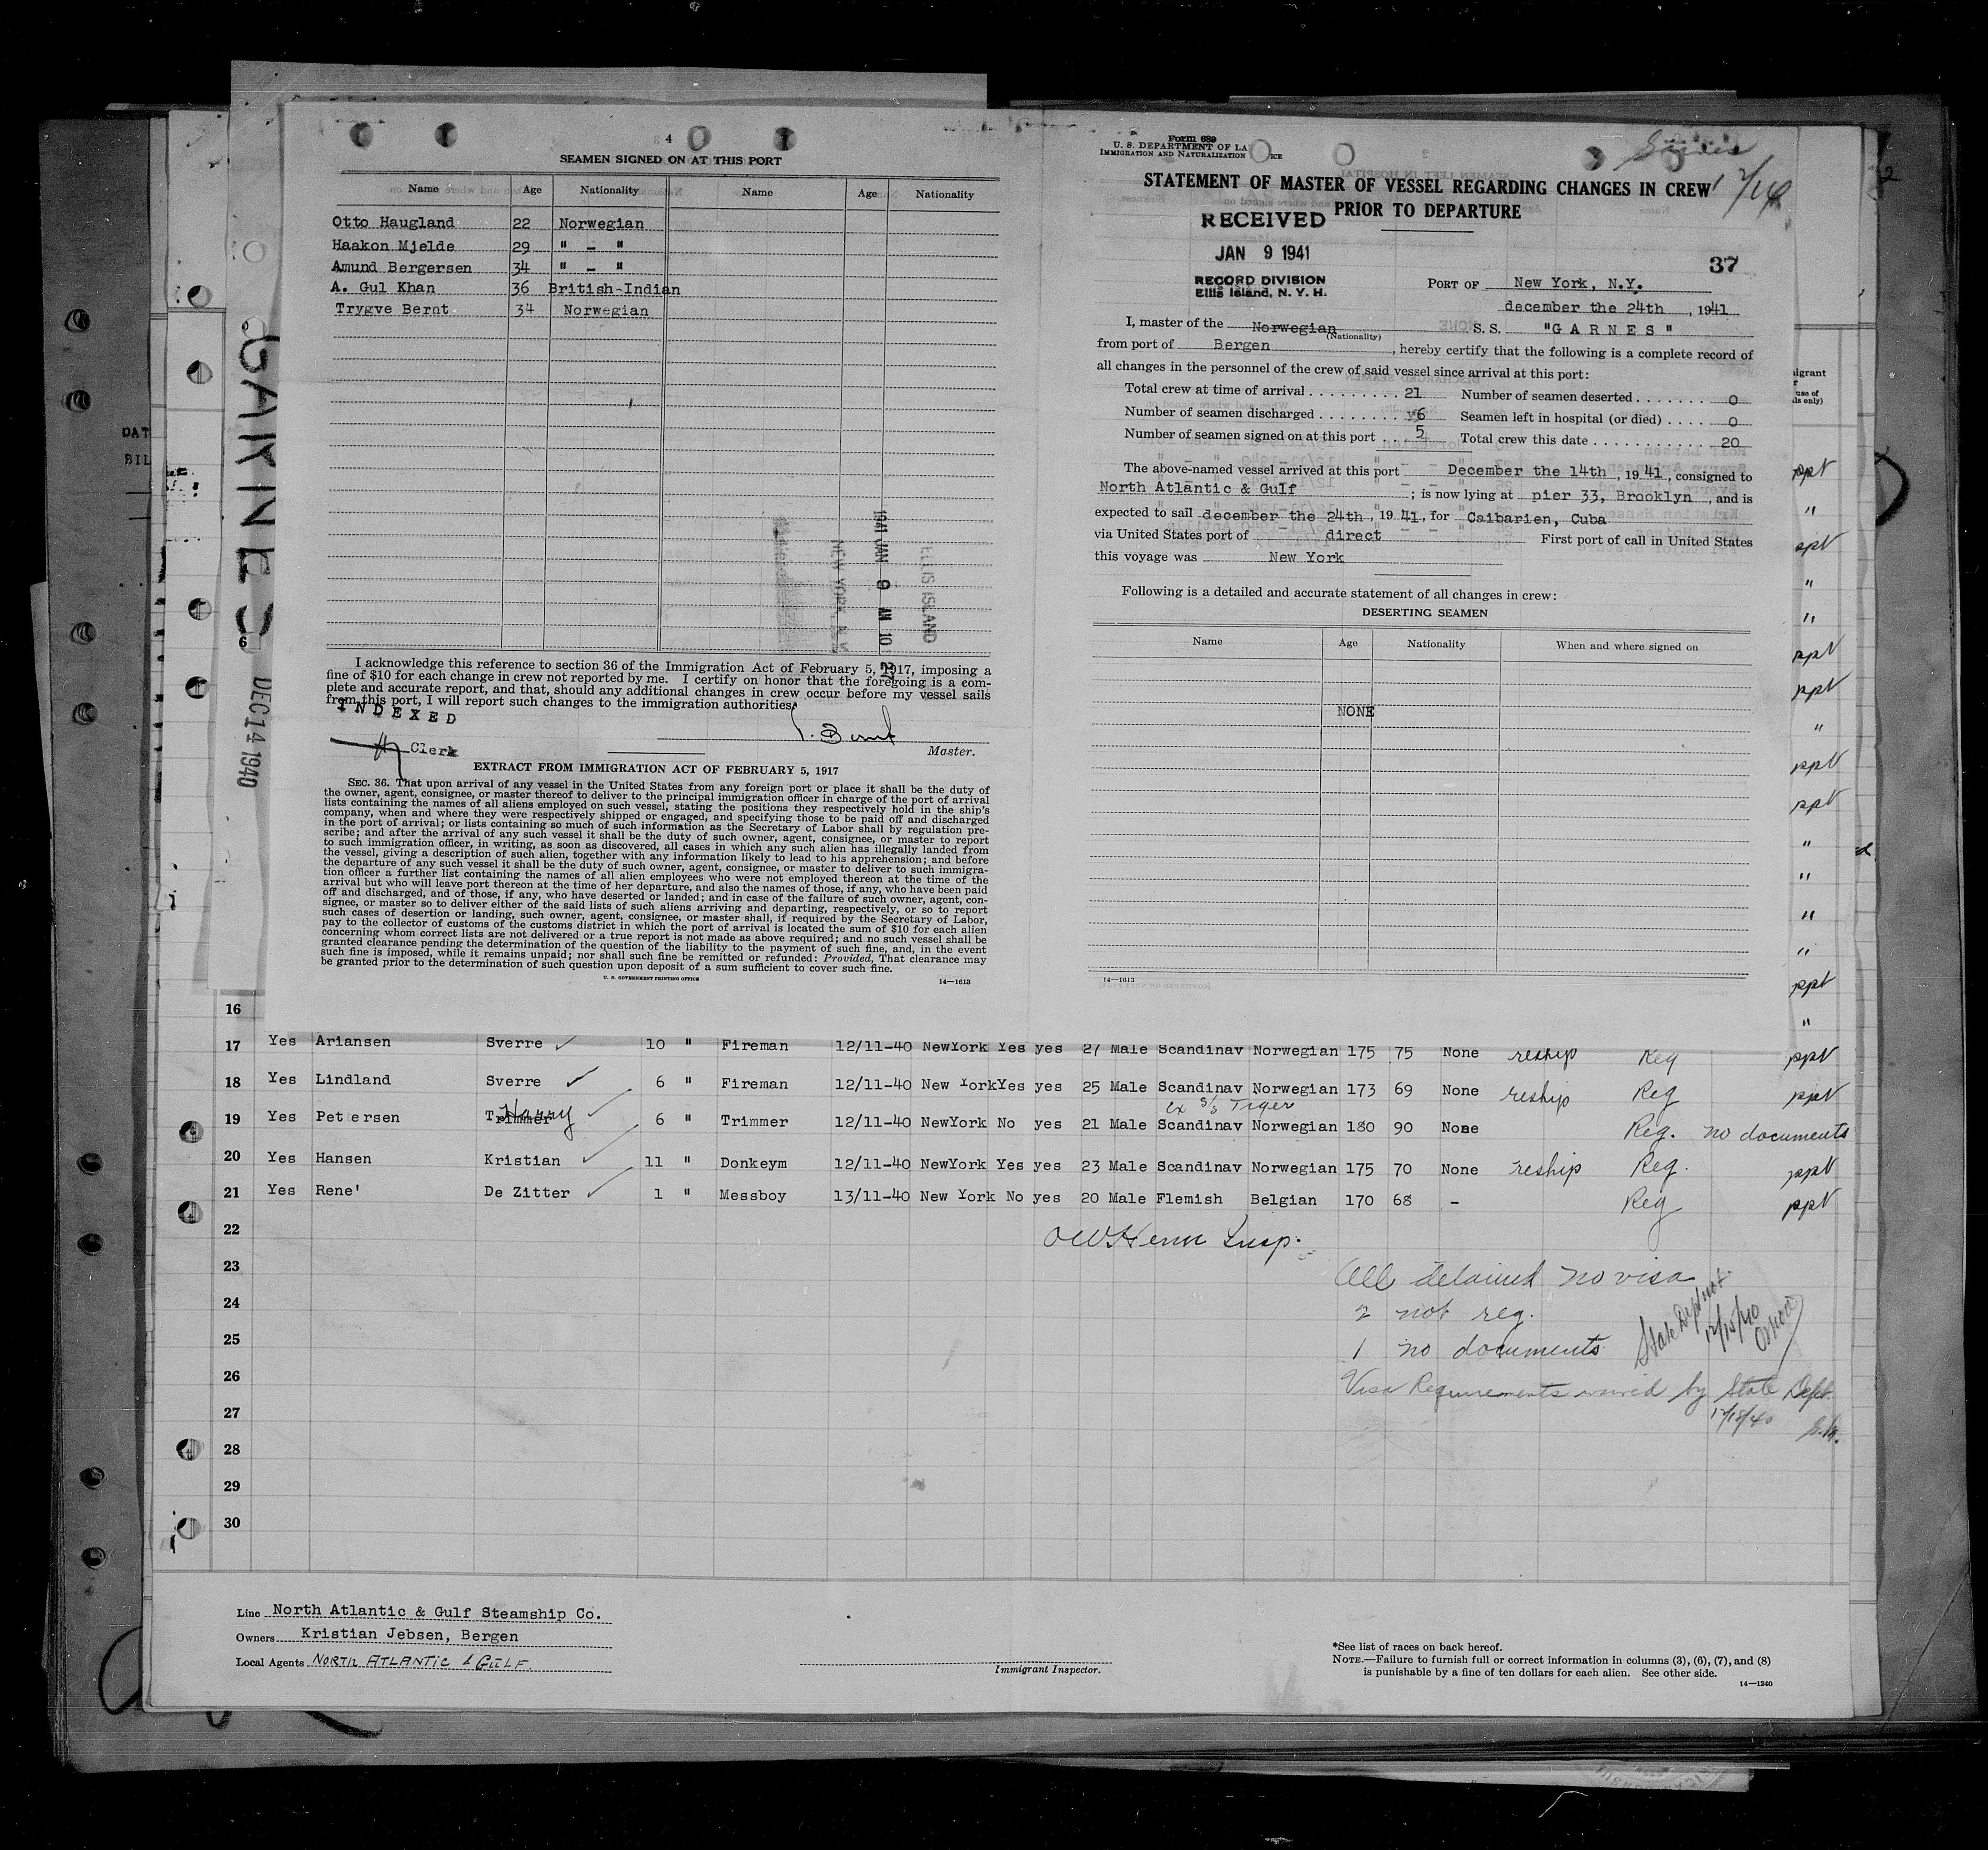 4
SEAMEN SIGNED ON AT THIS PORT
Name Age Nationality Name Age Nationality
Otto Haugland 22 Norwegian
Haakon Mjelde 29 " - "
Amund Bergersen 34 " - "
A. Gul Khan 36 British-Indian
Trygve Bernt 34 Norwegian
1941 JAN 9 AM 10 22
ELLIS ISLAND
NEW YORK
I acknowledge this reference to section 36 of the Immigration Act of February 5, 1917, imposing a
fine of $10 for each change in crew not reported by me. I certify on honor that the foregoing is a com-
plete and accurate report, and that, should any additional changes in crew occur before my vessel sails
from this port, I will report such changes to the immigration authorities.
INDEXED
Clerk
Bernt
Master.
EXTRACT FROM IMMIGRATION ACT OF FEBRUARY 5, 1917
SEC. 36. That upon arrival of any vessel in the United States from any foreign port or place it shall be the duty of
the owner, agent, consignee, or master thereof to deliver to the principal immigration officer in charge of the port of arrival
lists containing the names of all aliens employed on such vessel, stating the positions they respectively hold in the ship's
company, when and where they were respectively shipped or engaged, and specifying those to be paid off and discharged
in the port of arrival; or lists containing so much of such information as the Secretary of Labor shall by regulation pre-
scribe; and after the arrival of any such vessel it shall be the duty of such owner, agent, consignee, or master to report
to such immigration officer, in writing, as soon as discovered, all cases in which any such alien has illegally landed from
the vessel, giving a description of such alien, together with any information likely to lead to his apprehension; and before
the departure of any such vessel it shall be the duty of such owner, agent, consignee, or master to deliver to such immigra-
tion officer a further list containing the names of all alien employees who were not employed thereon at the time of the
arrival but who will leave port thereon at the time of her departure, and also the names of those, if any, who have been paid
off and discharged, and of those, if any, who have deserted or landed; and in case of the failure of such owner, agent, con-
signee, or master so to deliver either of the said lists of such aliens arriving and departing, respectively, or so to report
such cases of desertion or landing, such owner, agent, consignee, or master shall, if required by the Secretary of Labor,
pay to the collector of customs of the customs district in which the port of arrival is located the sum of $10 for each alien
concerning whom correct lists are not delivered or a true report is not made as above required; and no such vessel shall be
granted clearance pending the determination of the question of the liability to the payment of such fine, and, in the event
such fine is imposed, while it remains unpaid; nor shall such fine be remitted or refunded: Provided, That clearance may
be granted prior to the determination of such question upon deposit of a sum sufficient to cover such fine.
U. S. GOVERNMENT PRINTING OFFICE 14—1613
GARNES
DEC 14 1940
Form 689
U. S. DEPARTMENT OF LA
IMMIGRATION AND NATURALIZATION ICE
12/14
STATEMENT OF MASTER OF VESSEL REGARDING CHANGES IN CREW
PRIOR TO DEPARTURE
RECEIVED
JAN 9 1941
RECORD DIVISION
Ellis Island, N. Y. H.
37
PORT OF New York, N.Y.
december the 24th, 1941
I, master of the Norwegian S. S. "GARNES"
(Nationality)
from port of Bergen, hereby certify that the following is a complete record of
all changes in the personnel of the crew of said vessel since arrival at this port:
Total crew at time of arrival 21 Number of seamen deserted 0
Number of seamen discharged 6 Seamen left in hospital (or died) 0
Number of seamen signed on at this port 5 Total crew this date 20
The above-named vessel arrived at this port December the 14th, 1941, consigned to
North Atlantic & Gulf; is now lying at pier 33, Brooklyn, and is
expected to sail december the 24th, 1941, for Caibarien, Cuba
via United States port of direct First port of call in United States
this voyage was New York
Following is a detailed and accurate statement of all changes in crew:
DESERTING SEAMEN
Name Age Nationality When and where signed on
NONE
14—1613
16
17 Yes Ariansen Sverre 10 " Fireman 12/11-40 NewYork Yes yes 27 Male Scandinav Norwegian 175 75 None reship Reg ppt
18 Yes Lindland Sverre 6 " Fireman 12/11-40 New York Yes yes 25 Male Scandinav Norwegian 173 69 None reship Reg ppt
ex S/S Tiger
19 Yes Petersen Trimmer Harry 6 " Trimmer 12/11-40 NewYork No yes 21 Male Scandinav Norwegian 180 90 None Reg. no documents
20 Yes Hansen Kristian 11 " Donkeym 12/11-40 NewYork Yes yes 23 Male Scandinav Norwegian 175 70 None reship Reg. ppt
21 Yes Rene' De Zitter 1 " Messboy 13/11-40 New York No yes 20 Male Flemish Belgian 170 68 - Reg ppt
22
23
24
25
26
27
28
29
30
Insp.
All detained no visa
2 not reg.
1 no documents
State Dept not
12/15/40
Visa Requirements waived by State Dept.
12/18/40
Line North Atlantic & Gulf Steamship Co.
Owners Kristian Jebsen, Bergen
Local Agents NORTH ATLANTIC & GULF.
Immigrant Inspector.
*See list of races on back hereof.
NOTE.—Failure to furnish full or correct information in columns (3), (6), (7), and (8)
is punishable by a fine of ten dollars for each alien. See other side.
14—1240